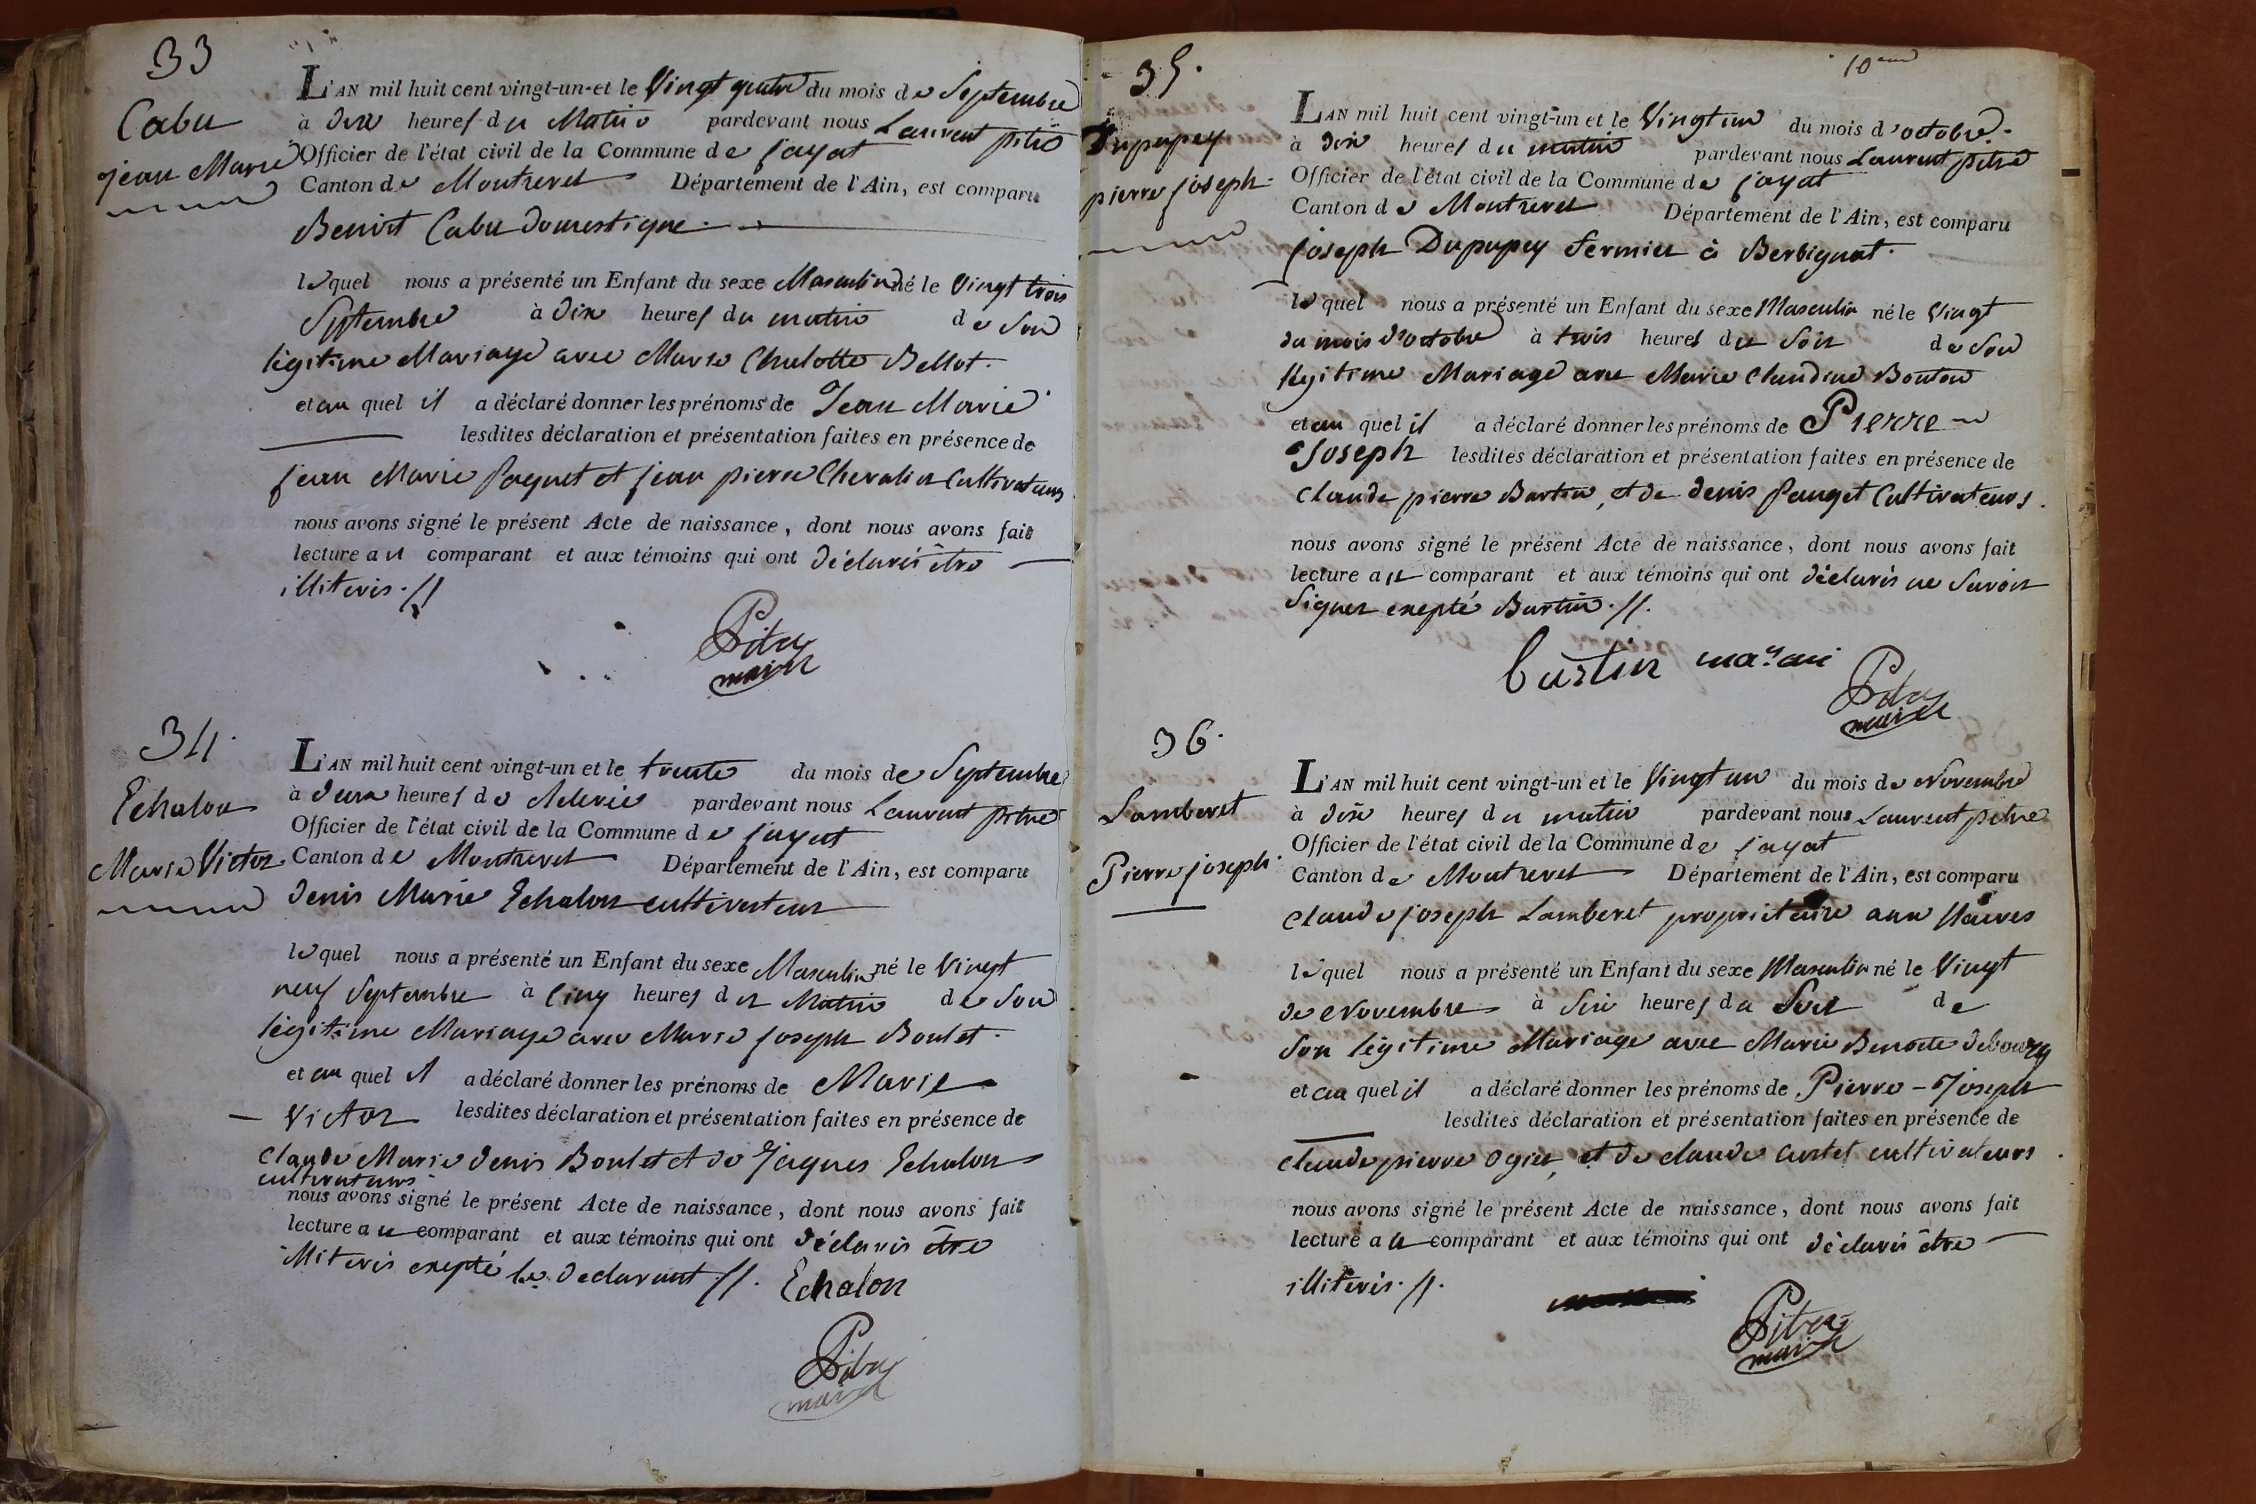 33
Cabu
jean Marie
L'AN mil huit cent vingt-un et le Vingt quatre du mois de Septembre
à dix heures du Matin pardevant nous Laurent pitre
Officier de l'état civil de la Commune de jayat
Canton de Montrevel Département de l'Ain, est comparu
Benoit Cabu domestique.
lequel nous a présenté un Enfant du sexe Masculin né le Vingt trois
Septembre à dix heures du matin de Son
légitime Mariage avec Marie Charlotte Bellot.
et au quel il a déclaré donner les prénoms de Jean Marie
lesdites déclaration et présentation faites en présence de
jean Marie paquet et jean pierre Chevalier Cultivateurs
nous avons signé le présent Acte de naissance, dont nous avons fait
lecture au comparant et aux témoins qui ont déclarés être
illiterés.
Pitre
maire
34.
Echalon
Marie Victor
L'AN mil huit cent vingt-un et le trente du mois de Septembre
à deux heures de Relevée pardevant nous Laurent pitre
Officier de l'état civil de la Commune de jayat
Canton de Montrevel Département de l'Ain, est comparu
denis Marie Echalon cultivateur
lequel nous a présenté un Enfant du sexe Masculin né le Vingt
neuf Septembre à Cinq heures du Matin de Son
légitime Mariage avec Marie joseph Boulet.
et au quel il a déclaré donner les prénoms de Marie
Victor lesdites déclaration et présentation faites en présence de
Claude Marie denis Boulet et de Jaques Echalon
cultivateurs
nous avons signé le présent Acte de naissance, dont nous avons fait
lecture au comparant et aux témoins qui ont déclarés être
illiterés exepté le declarant. Echalon
Pitre
maire
10eme
35.
Dupupey
pierre joseph.
L'AN mil huit cent vingt-un et le Vingt un du mois d'octobre.
à dix heures du matin pardevant nous Laurent pitre
Officier de l'état civil de la Commune de jayat
Canton de Montrevel Département de l'Ain, est comparu
joseph Dupupey fermier à Berbignat.
lequel nous a présenté un Enfant du sexe Masculin né le Vingt
du mois d'octobre à trois heures du Soir de Son
légitime Mariage avec Marie Claudine Bouton
et au quel il a déclaré donner les prénoms de Pierre
Joseph lesdites déclaration et présentation faites en présence de
Claude pierre Burtin, et de denis pauget Cultivateurs.
nous avons signé le présent Acte de naissance, dont nous avons fait
lecture au comparant et aux témoins qui ont déclarés ne Savoir
Signer exepté Burtin.
burtin
Pitre
maire
36.
Lamberet
Pierre joseph.
L'AN mil huit cent vingt-un et le Vingt un du mois de Novembre
à dix heures du matin pardevant nous Laurent pitre
Officier de l'état civil de la Commune de jayat
Canton de Montrevel Département de l'Ain, est comparu
Claude joseph Lamberet propriétaire aux
lequel nous a présenté un Enfant du sexe Masculin né le Vingt
de Novembre à Six heures du Soir de
Son légitime Mariage avec Marie Benoite debourg
et au quel il a déclaré donner les prénoms de Pierre-Joseph
lesdites déclaration et présentation faites en présence de
Claude pierre ogier, et de claude curtet cultivateurs.
nous avons signé le présent Acte de naissance, dont nous avons fait
lecture au comparant et aux témoins qui ont déclarés être
illiterés.
Pitre
maire